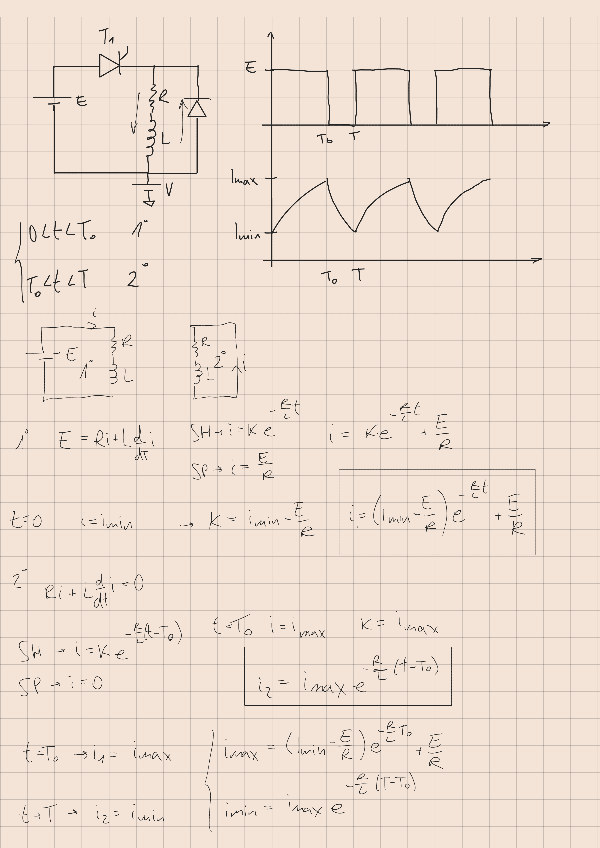 T1
E
R
L
V
V
E
To T
Imax
Imin
To T
0<t<To 1°
To<t<T 2°
i
E
R
L
1°
R
L
2°
i
1° E = Ri + L d/dt i SH → i = K e^(-R/L t) i = K e^(-R/L t) + E/R
SP → i = E/R
t=0 i = imin → K = imin - E/R i = (Imin - E/R) e^(-R/L t) + E/R
2° Ri + L d/dt i = 0
t=To i = imax K = imax
SH → i = K e^(-R/L (t-To))
SP → i = 0
i2 = imax e^(-R/L (t-To))
t=To → i1 = imax imax = (Imin - E/R) e^(-R/L To) + E/R
t=T → i2 = imin imin = imax e^(-R/L (T-To))